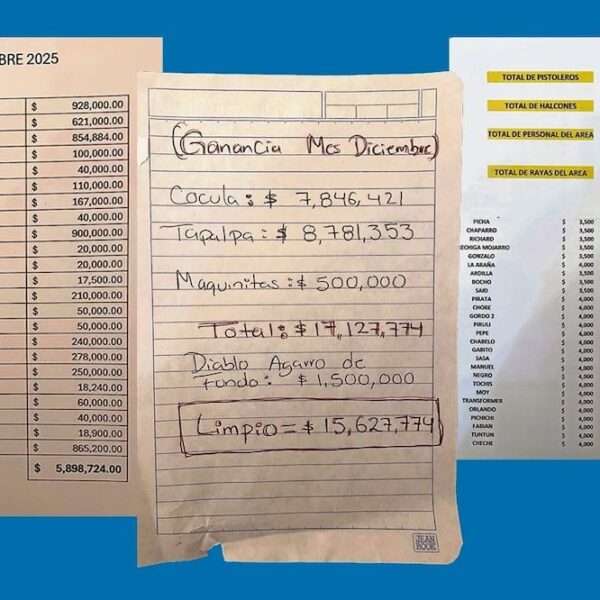 BRE 2025
$ 928,000.00
$ 621,000.00
$ 854,884.00
$ 100,000.00
$ 40,000.00
$ 110,000.00
$ 167,000.00
$ 40,000.00
$ 900,000.00
$ 20,000.00
$ 20,000.00
$ 17,500.00
$ 210,000.00
$ 50,000.00
$ 50,000.00
$ 240,000.00
$ 278,000.00
$ 250,000.00
$ 18,240.00
$ 60,000.00
$ 40,000.00
$ 18,900.00
$ 865,200.00
$ 5,898,724.00
(Ganancia Mes Diciembre)
Cocula: $ 7,846,421
Tapalpa: $ 8,781,353
Maquinitas: $ 500,000
Total: $ 17,127,774
Diablo Agarro de
fondo: $ 1,500,000
Limpio = $ 15,627,774
JEAN
BOOK
TOTAL DE PISTOLEROS
TOTAL DE HALCONES
TOTAL DE PERSONAL DEL AREA
TOTAL DE RAYAS DEL AREA
PICHA $ 3,500
CHAPARRO $ 3,500
RICHARD $ 3,500
ECHIGA MOJARRO $ 3,500
GONZALO $ 3,500
LA ARAÑA $ 4,000
ARDILLA $ 3,500
BOCHO $ 3,500
SAID $ 3,500
PIRATA $ 4,000
CHORE $ 4,000
GORDO 2 $ 4,000
PIRULI $ 4,000
PEPE $ 4,000
CHABELO $ 4,000
GABITO $ 4,000
SASA $ 4,000
MANUEL $ 4,000
NEGRO $ 4,000
TOCHIS $ 4,000
MOY $ 4,000
TRANSFORMER $ 4,000
ORLANDO $ 4,000
PICHICHI $ 4,000
FABIAN $ 4,000
TUNTUN $ 4,000
CHECHE $ 4,000